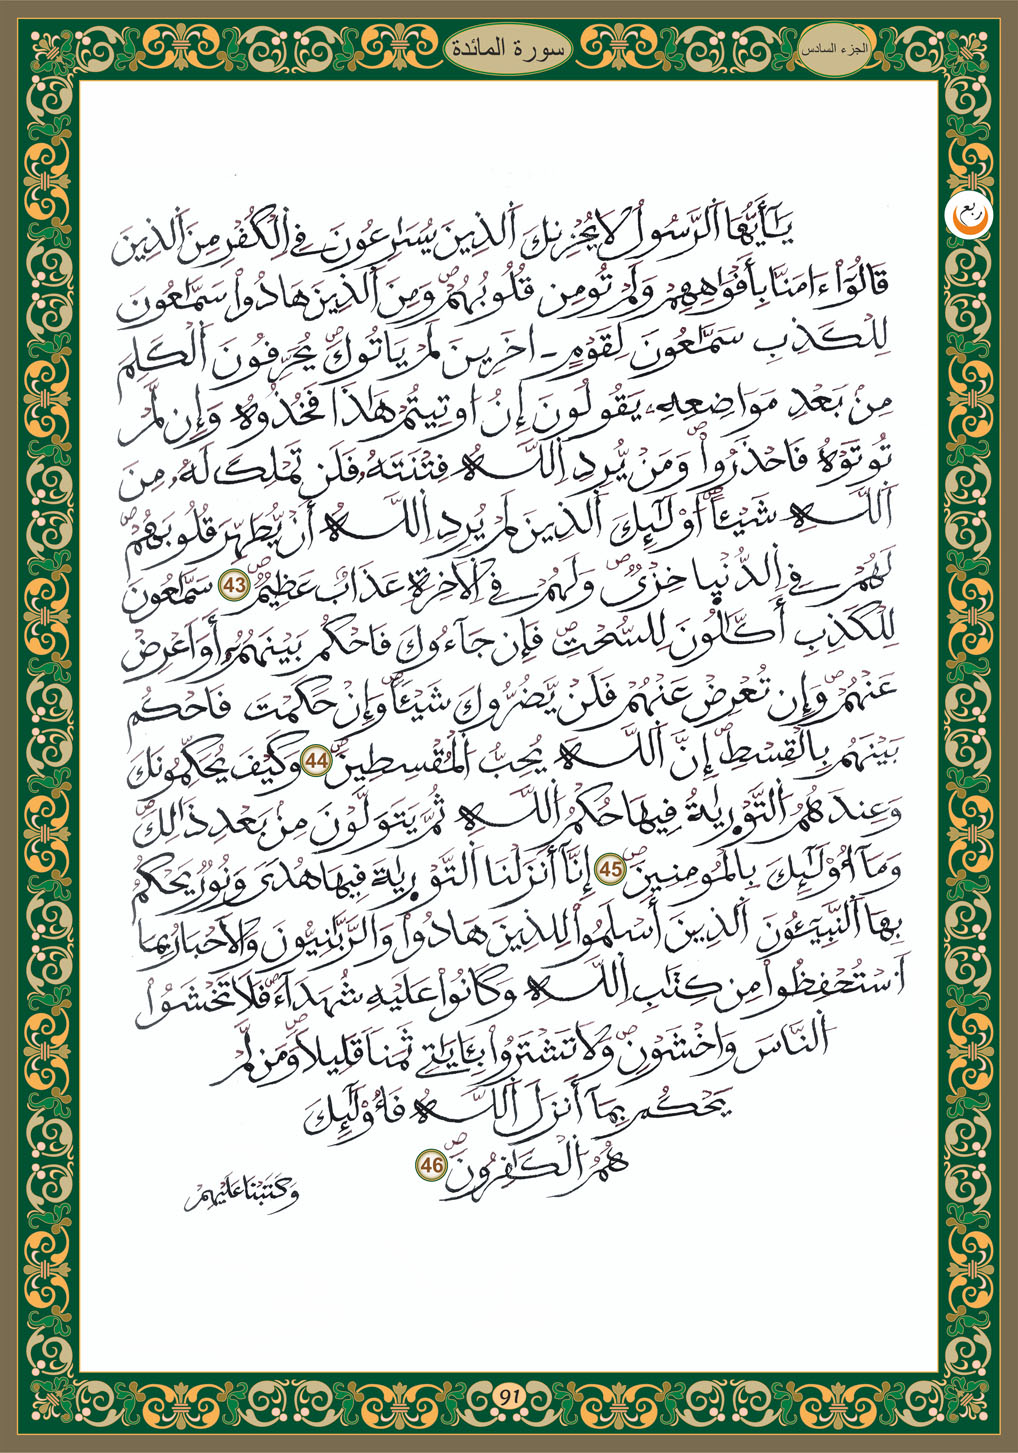 سورة المائدة
الجزء السادس
ربع
يَٰٓأَيُّهَا اَ۬لرَّسُولُ لَا يُحْزِنكَ اَ۬لذِينَ يُسَٰرِعُونَ فِے اِ۬لْكُفْرِ مِنَ اَ۬لذِينَ
قَالُوٓاْ ءَامَنَّا بِأَفْوَٰهِهِمْ وَلَمْ تُومِن قُلُوبُهُمْۖ وَمِنَ اَ۬لذِينَ هَادُواْ سَمَّٰعُونَ
لِلْكَذِبِ سَمَّٰعُونَ لِقَوْمٍ ـ اٰخَرِينَ لَمْ يَاتُوكَۖ يُحَرِّفُونَ اَ۬لْكَلِمَ
مِنۢ بَعْدِ مَوَاضِعِهِۦ يَقُولُونَ إِنُ ا۟وتِيتُمْ هَٰذَا فَخُذُوهُ وَإِن لَّمْ
تُوتَوْهُ فَاحْذَرُواْۖ وَمَنْ يُّرِدِ اِ۬للَّهُ فِتْنَتَهُۥ فَلَن تَمْلِكَ لَهُۥ مِنَ
اَ۬للَّهِ شَيْـٔاًۖ ا۟وْلَٰٓئِكَ اَ۬لذِينَ لَمْ يُرِدِ اِ۬للَّهُ أَنْ يُّطَهِّرَ قُلُوبَهُمْۖ
لَهُمْ فِے اِ۬لدُّنْي۪ا خِزْيٌۖ وَلَهُمْ فِے اِ۬لَاخِرَةِ عَذَابٌ عَظِيمٌۖ 43 سَمَّٰعُونَ
لِلْكَذِبِ أَكَّٰلُونَ لِلسُّحْتِۖ فَإِن جَآءُوكَ فَاحْكُم بَيْنَهُمُۥٓ أَوَ اَعْرِضْ
عَنْهُمْۖ وَإِن تُعْرِضْ عَنْهُمْ فَلَنْ يَّضُرُّوكَ شَيْـٔاًۖ وَإِنْ حَكَمْتَ فَاحْكُم
بَيْنَهُم بِالْقِسْطِۖ إِنَّ اَ۬للَّهَ يُحِبُّ اُ۬لْمُقْسِطِينَۖ 44 وَكَيْفَ يُحَكِّمُونَكَ
وَعِندَهُمُ اُ۬لتَّوْر۪يٰةُ فِيهَا حُكْمُ اُ۬للَّهِ ثُمَّ يَتَوَلَّوْنَ مِنۢ بَعْدِ ذَٰلِكَۖ
وَمَآ أُوْلَٰٓئِكَ بِالْمُومِنِينَۖ 45 إِنَّآ أَنزَلْنَا اَ۬لتَّوْر۪يٰةَ فِيهَا هُدىً وَنُورٌ يَحْكُمُ
بِهَا اَ۬لنَّبِيٓـُٔونَ اَ۬لذِينَ أَسْلَمُواْ لِلذِينَ هَادُواْ وَالرَّبَّٰنِيُّونَ وَالَاحْبَارُ بِمَا
اَ۟سْتُحْفِظُواْ مِن كِتَٰبِ اِ۬للَّهِ وَكَانُواْ عَلَيْهِ شُهَدَآءَۖ فَلَا تَخْشَوُاْ
اُ۬لنَّاسَ وَاخْشَوْنِۖ وَلَا تَشْتَرُواْ بِـَٔايَٰتِے ثَمَناً قَلِيلاًۖ وَمَن لَّمْ
يَحْكُم بِمَآ أَنزَلَ اَ۬للَّهُ فَأُوْلَٰٓئِكَ
هُمُ اُ۬لْكَٰفِرُونَۖ 46
وَكَتَبْنَا عَلَيْهِمْ
91